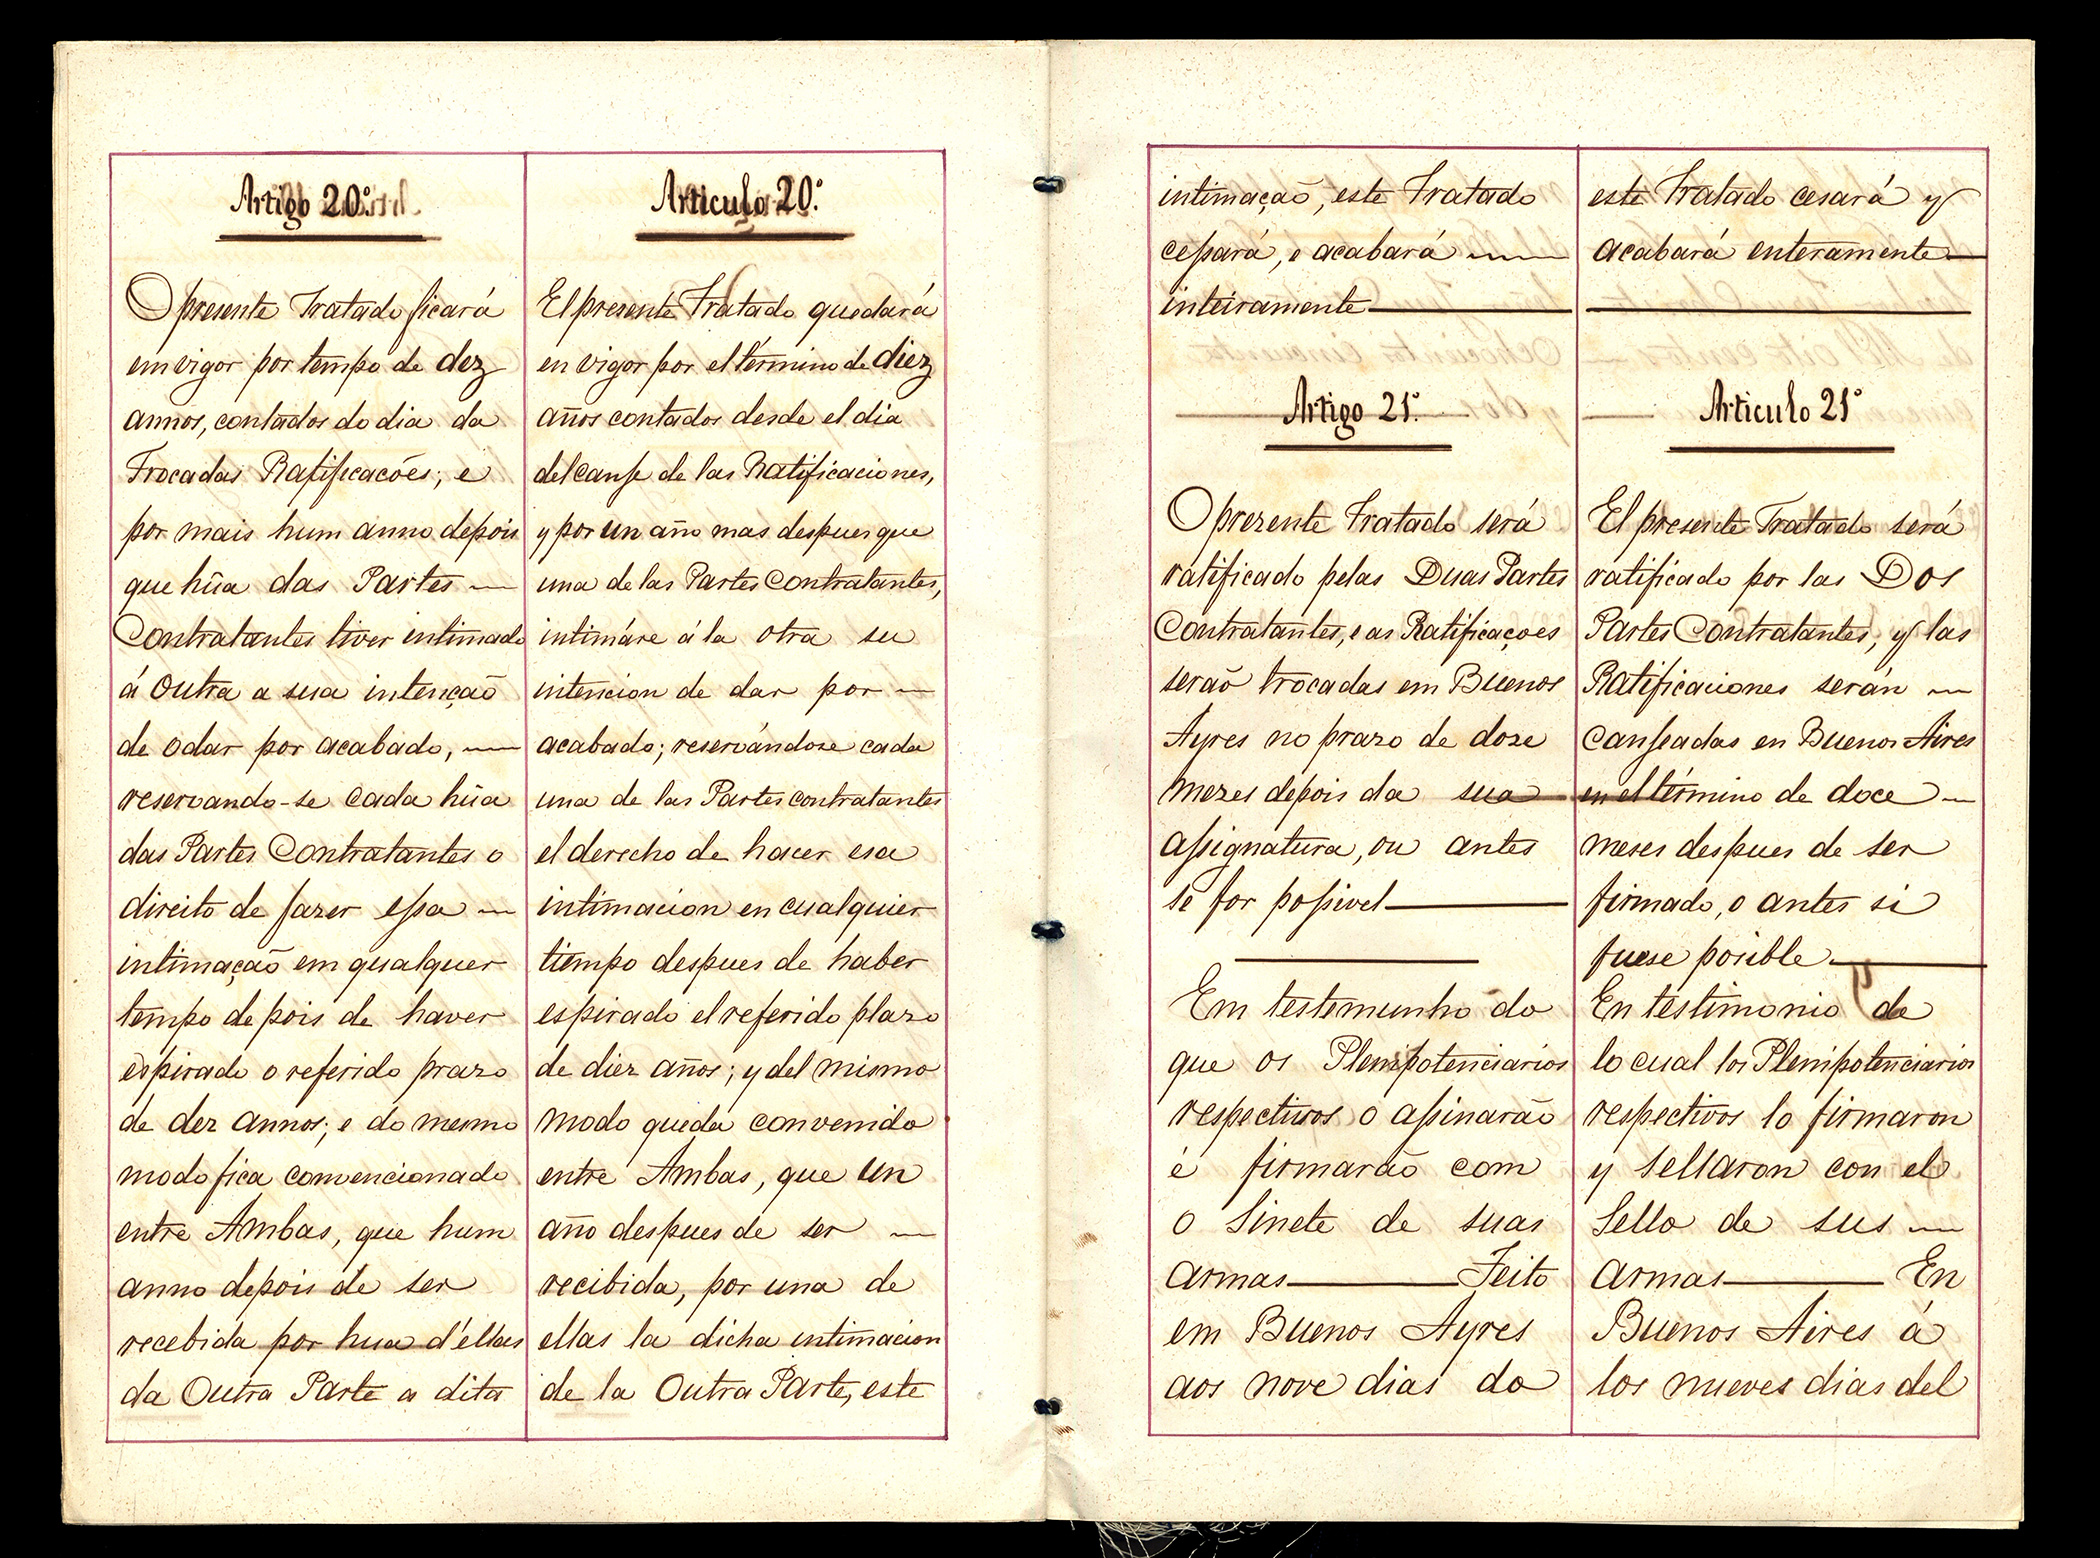 Artigo 20.º
O presente Tratado ficará
em vigor por tempo de dez
annos, contados do dia da
Troca das Ratificacoẽs; e
por mais hum anno depois
que hũa das Partes —
Contratantes tiver intimado
á Outra a sua intençaõ
de o dar por acabado, —
reservando-se Cada hũa
das Partes Contratantes o
direito de fazer essa —
intimaçaõ em qualquer
tempo depois de haver
espirado o referido prazo
de dez annos; e do mesmo
modo fica convencionado
entre Ambas, que hum
anno depois de ser
recebida por hua d'ellas
da Outra Parte a dita
Articulo 20.º
El presente Tratado quedará
en vigor por el término de diez
años contados desde el dia
del canje de las Ratificaciones,
y por un año mas despues que
una de las Partes Contratantes,
intimáre á la otra su
intencion de dar por —
acabado; reservándose cada
una de las Partes contratantes
el derecho de hacer esa
intimacion en cualquier
tiempo despues de haber
espirado el referido plazo
de diez años; y del mismo
modo queda convenido
entre Ambas, que un
año despues de ser —
recibida, por una de
ellas la dicha intimacion
de la Outra Parte, este
intimaçaõ, este Tratado
cessará, e acabará —
inteiramente —
Artigo 21.º
O prezente Tratado será
ratificado pelas Duas Partes
Contratantes, e as Ratificaçoes
seraõ trocadas em Buenos
Ayres no prazo de doze
mezes depois da sua
assignatura, ou antes
se for possivel —
Em testemunho do
que os Plenipotenciarios
respectivos o assinarão
e firmarão com
o Sinete de suas
Armas — Feito
em Buenos Ayres
aos nove dias do
este Tratado cesará y
acabará enteramente —
Articulo 21º
El presente Tratado será
ratificado por las Dos
Partes Contratantes, y las
Ratificaciones serán —
Canjeadas en Buenos Aires
en el término de doce —
meses despues de ser
firmado, o antes si
fuese posible —
En testimonio de
lo cual los Plenipotenciarios
respectivos lo firmaron
y sellaron con el
Sello de sus —
Armas — En
Buenos Aires á
los nueves dias del